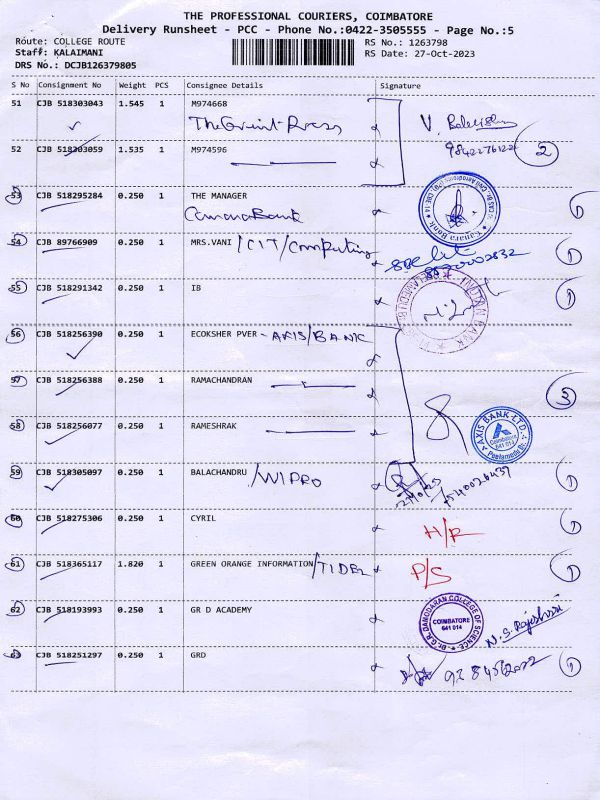 THE PROFESSIONAL COURIERS, COIMBATORE
Delivery Runsheet - PCC - Phone No.:0422-3505555 - Page No.:5
Route: COLLEGE ROUTE
RS No.: 1263798
Staff: KALAIMANI
RS Date: 27-Oct-2023
DRS No.: DCJB126379805
S No Consignment No Weight PCS Consignee Details Signature
51 CJB 518303043 1.545 1 M974668
The Print Press V.
52 CJB 518303059 1.535 1 M974596 9842276122 2
53 CJB 518295284 0.250 1 THE MANAGER 1
Canara Bank
54 CJB 89766909 0.250 1 MRS.VANI /CIT/Computing 1
55 CJB 518291342 0.250 1 IB 1
INDIAN BANK
56 CJB 518256390 0.250 1 ECOKSHER PVER - AXIS/BANK
57 CJB 518256388 0.250 1 RAMACHANDRAN 3
58 CJB 518256077 0.250 1 RAMESHRAK
AXIS BANK LTD.
Coimbatore
641 014
59 CJB 518305097 0.250 1 BALACHANDRU /WIPRO 1
60 CJB 518275306 0.250 1 CYRIL H/R 1
61 CJB 518365117 1.820 1 GREEN ORANGE INFORMATION /TIDEL P/S 1
62 CJB 518193993 0.250 1 GR D ACADEMY
Dr. G.R. DAMODARAN COLLEGE OF SCIENCE
COIMBATORE
641 014
N.S. Rajeshwari
63 CJB 518251297 0.250 1 GRD 1